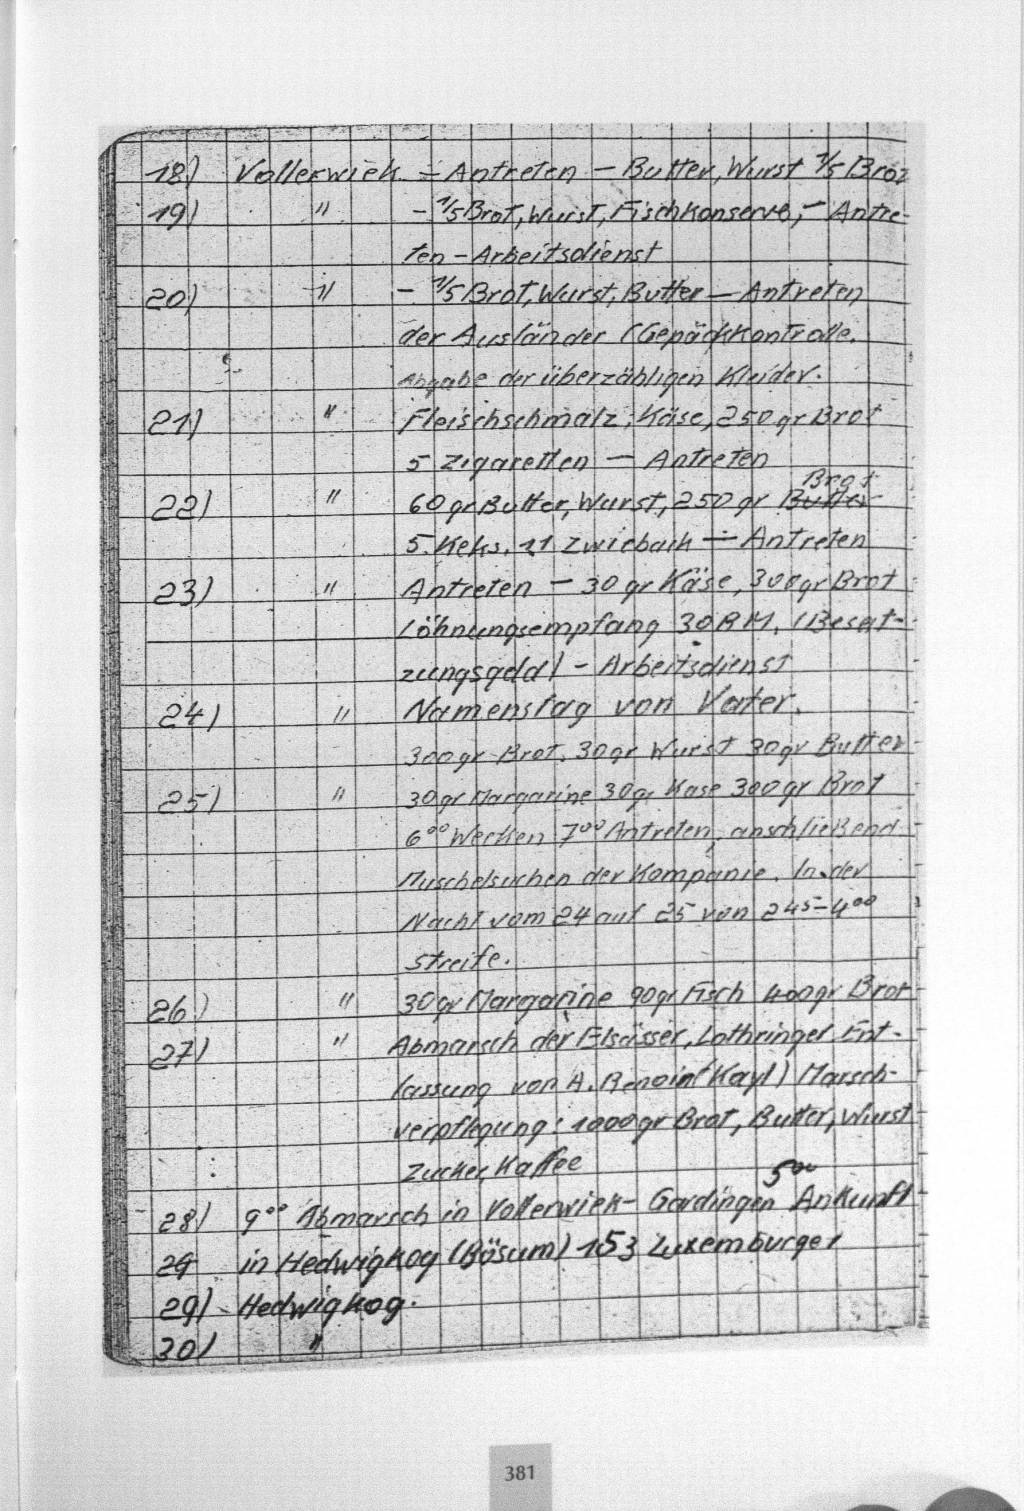 18) Vollerwiek - Antreten - Butter, Wurst 1/5 Brot
19) " - 1/5 Brot, Wurst, Fischkonserve, - Antre-
ten - Arbeitsdienst
20) " - 1/5 Brot, Wurst, Butter - Antreten
der Ausländer (Gepäckkontrolle.
Abgabe der überzähligen Kleider.
21) " Fleischschmalz, Käse, 250 gr Brot
5 Zigaretten - Antreten
Brot
22) " 60 gr Butter, Wurst, 250 gr Butter
5. Keks, 11 Zwieback - Antreten
23) " Antreten - 30 gr Käse, 300 gr Brot
Löhnungsempfang 30 RM. (Besat-
zungsgeld) - Arbeitsdienst
24) " Namenstag von Vater.
300 gr Brot. 30 gr Wurst 30 gr Butter
25) " 30 gr Margarine 30 gr Käse 300 gr Brot
6⁰⁰ Wecken 7⁰⁰ Antreten, anschließend
Muschelsuchen der Kompanie. In der
Nacht vom 24 auf 25 von 2⁴⁵-4⁰⁰
Streife.
26) " 30 gr Margarine 90 gr Fisch 400 gr Brot
27) " Abmarsch der Elsässer, Lothringer. Ent-
lassung von A. Renoin (Kayl) Marsch-
verpflegung: 1000 gr Brot, Butter, Wurst
Zucker, Kaffee
5⁰⁰
28) 9⁰⁰ Abmarsch in Vollerwiek - Gardingen Ankunft
29 in Hedwigkog (Büsum) 153 Luxemburger
29) - Hedwigkog.
30) "
381